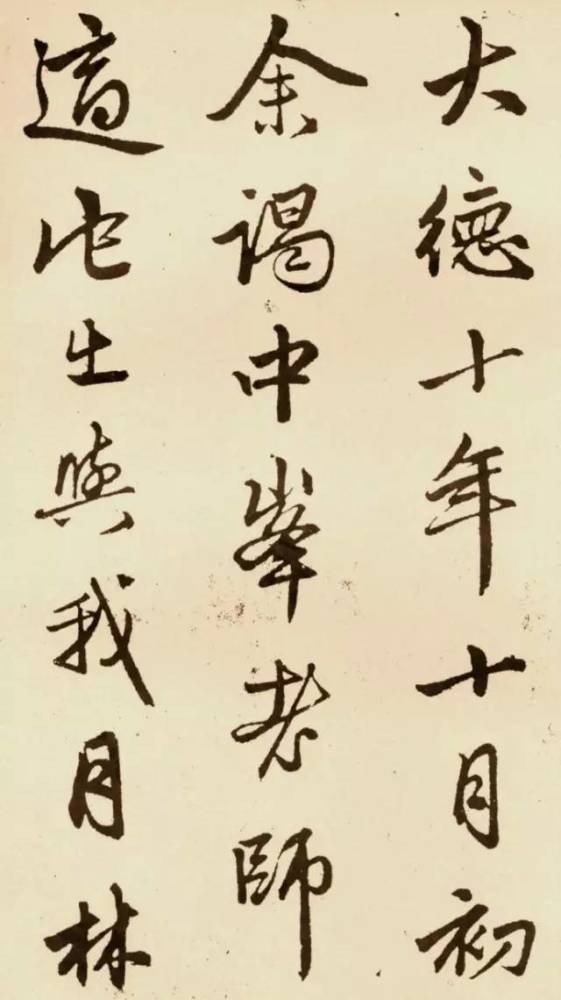 大德十年十月初
余謁中峯老師
適佗出與我月林